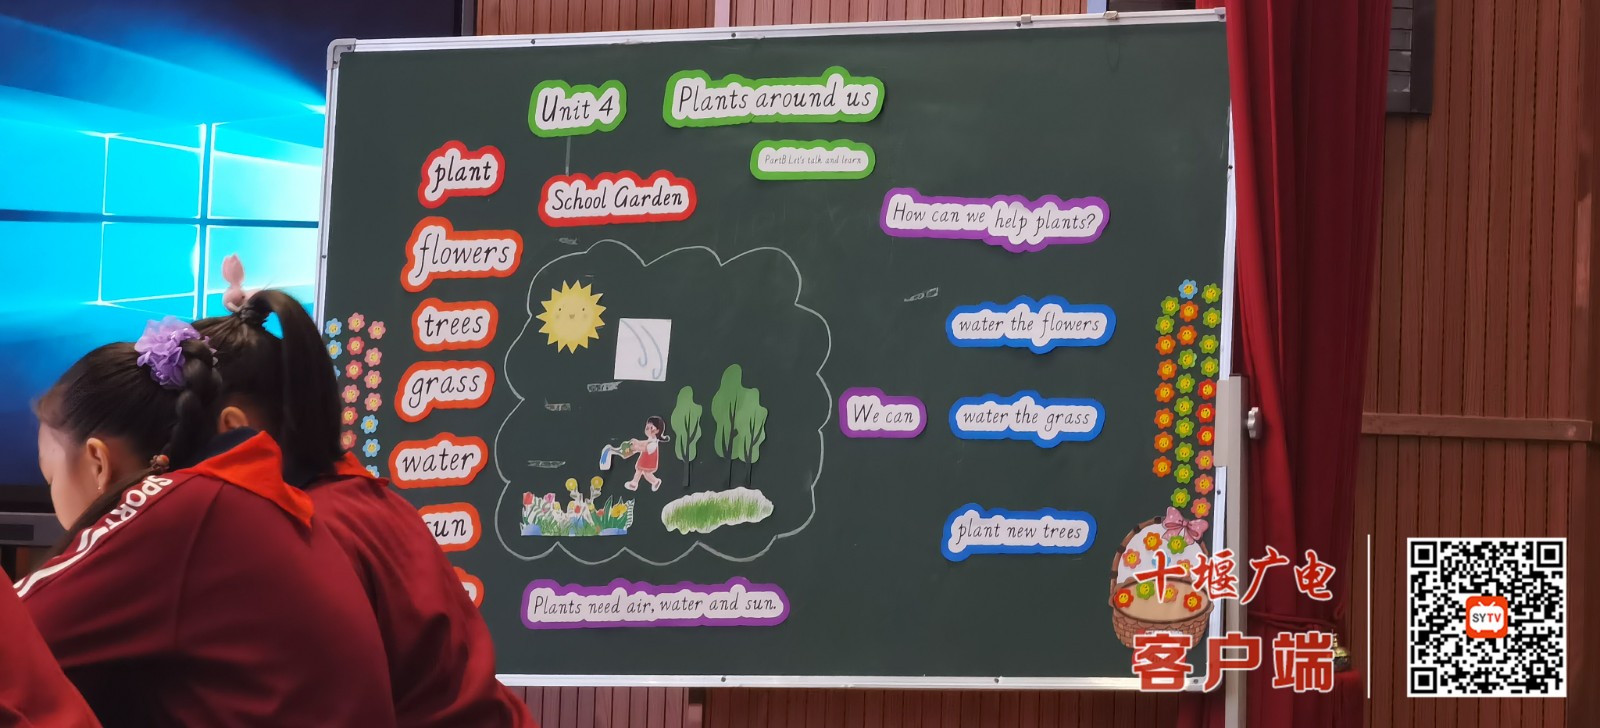 Unit 4
Plants around us
PartB Let's talk and learn
School Garden
plant
flowers
trees
grass
water
sun
How can we help plants?
We can
water the flowers
water the grass
plant new trees
Plants need air, water and sun.
SPORTS
十堰广电
客户端
SYTV